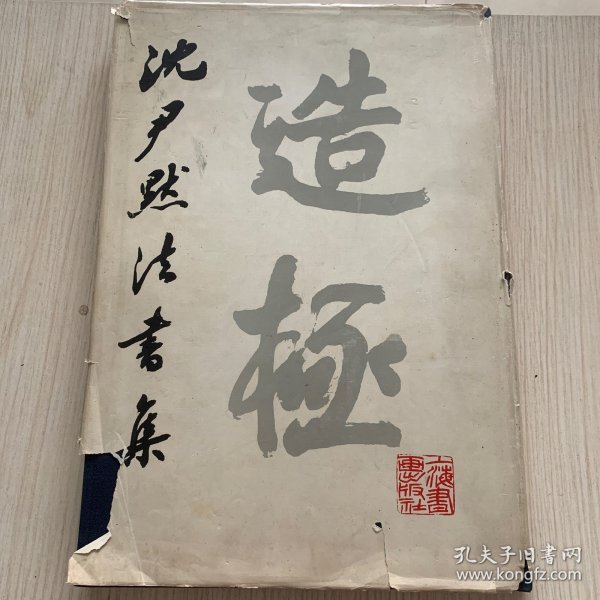 沈尹默法書集
造極
上海書畫出版社
孔夫子旧书网
www.kongfz.com